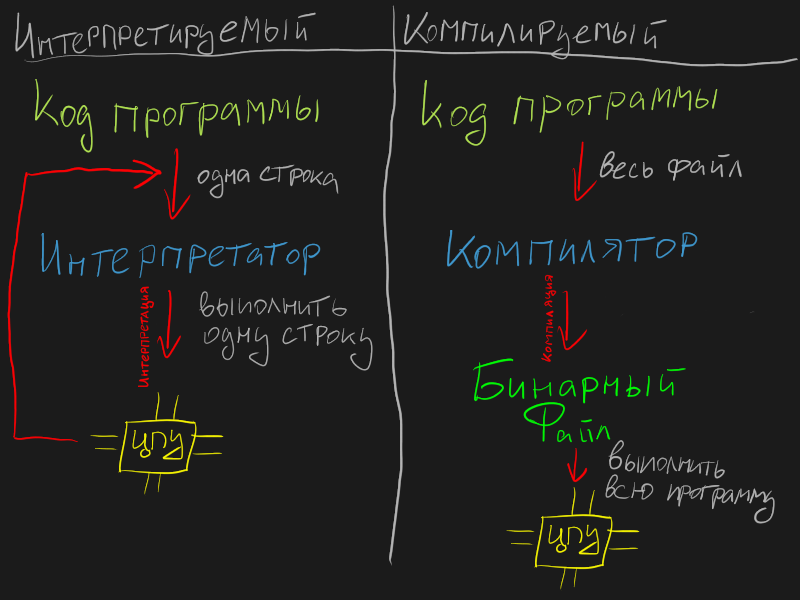 Интерпретируемый
Код программы
одна строка
Интерпретатор
Интерпретация
выполнить
одну строку
ЦПУ
Компилируемый
Код программы
весь файл
Компилятор
Компиляция
Бинарный
Файл
выполнить
всю программу
ЦПУ